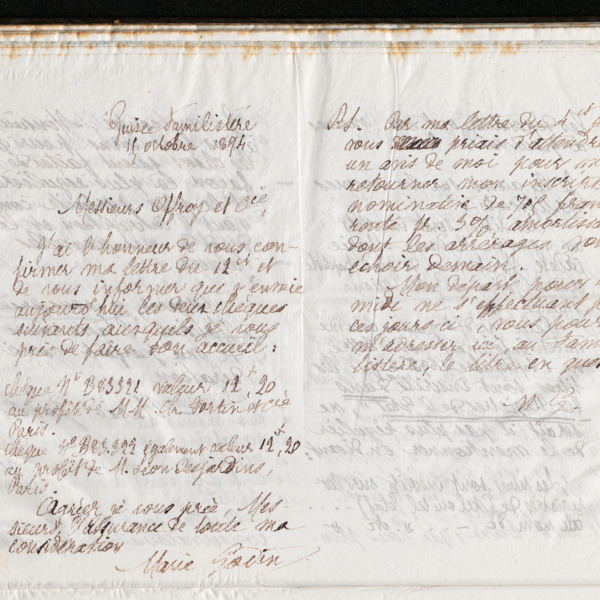 Guise Familistère
15 octobre 1894
Messieurs Offroy et Cie,
J'ai l'honneur de vous con-
firmer ma lettre du 12 ct et
de vous informer que j'envoie
aujourd'hui les deux chèques
suivants auxquels je vous
prie de faire bon accueil :
chèque No B83.321 valeur 12f,20
au profit de M.M. Ch. Fortin et Cie
Paris.
chèque No B83.322 également valeur 12f,20
au profit de M. Léon Desjardins,
Paris.
Agréer je vous prie, Mes-
sieurs l'assurance de toute ma
considération
Marie Godin
P.S. Par ma lettre du 4 ct
vous priais d'attendre
un avis de moi pour
retourner mon
nominative de
rente fr. 3%
dont les arrérages
échoir demain.
Mon départ pour
midi ne s'effectuant
ces jours-ci, vous
m'adresser ici, au Fami
listère, le titre en
M. G.